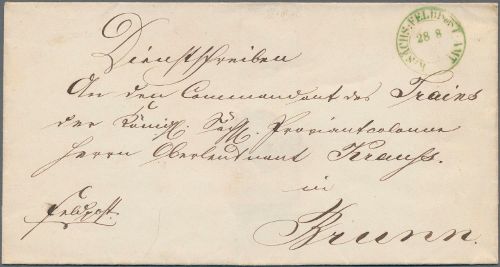 Dienstschreiben
K. SÄCHS. FELDPOST AMT
28 8
An den Commandant des Trains
der Königl. Sächs. Proviantcolonne
Herrn Oberleutnant Krauss.
in
Feldpost.
Brunn.